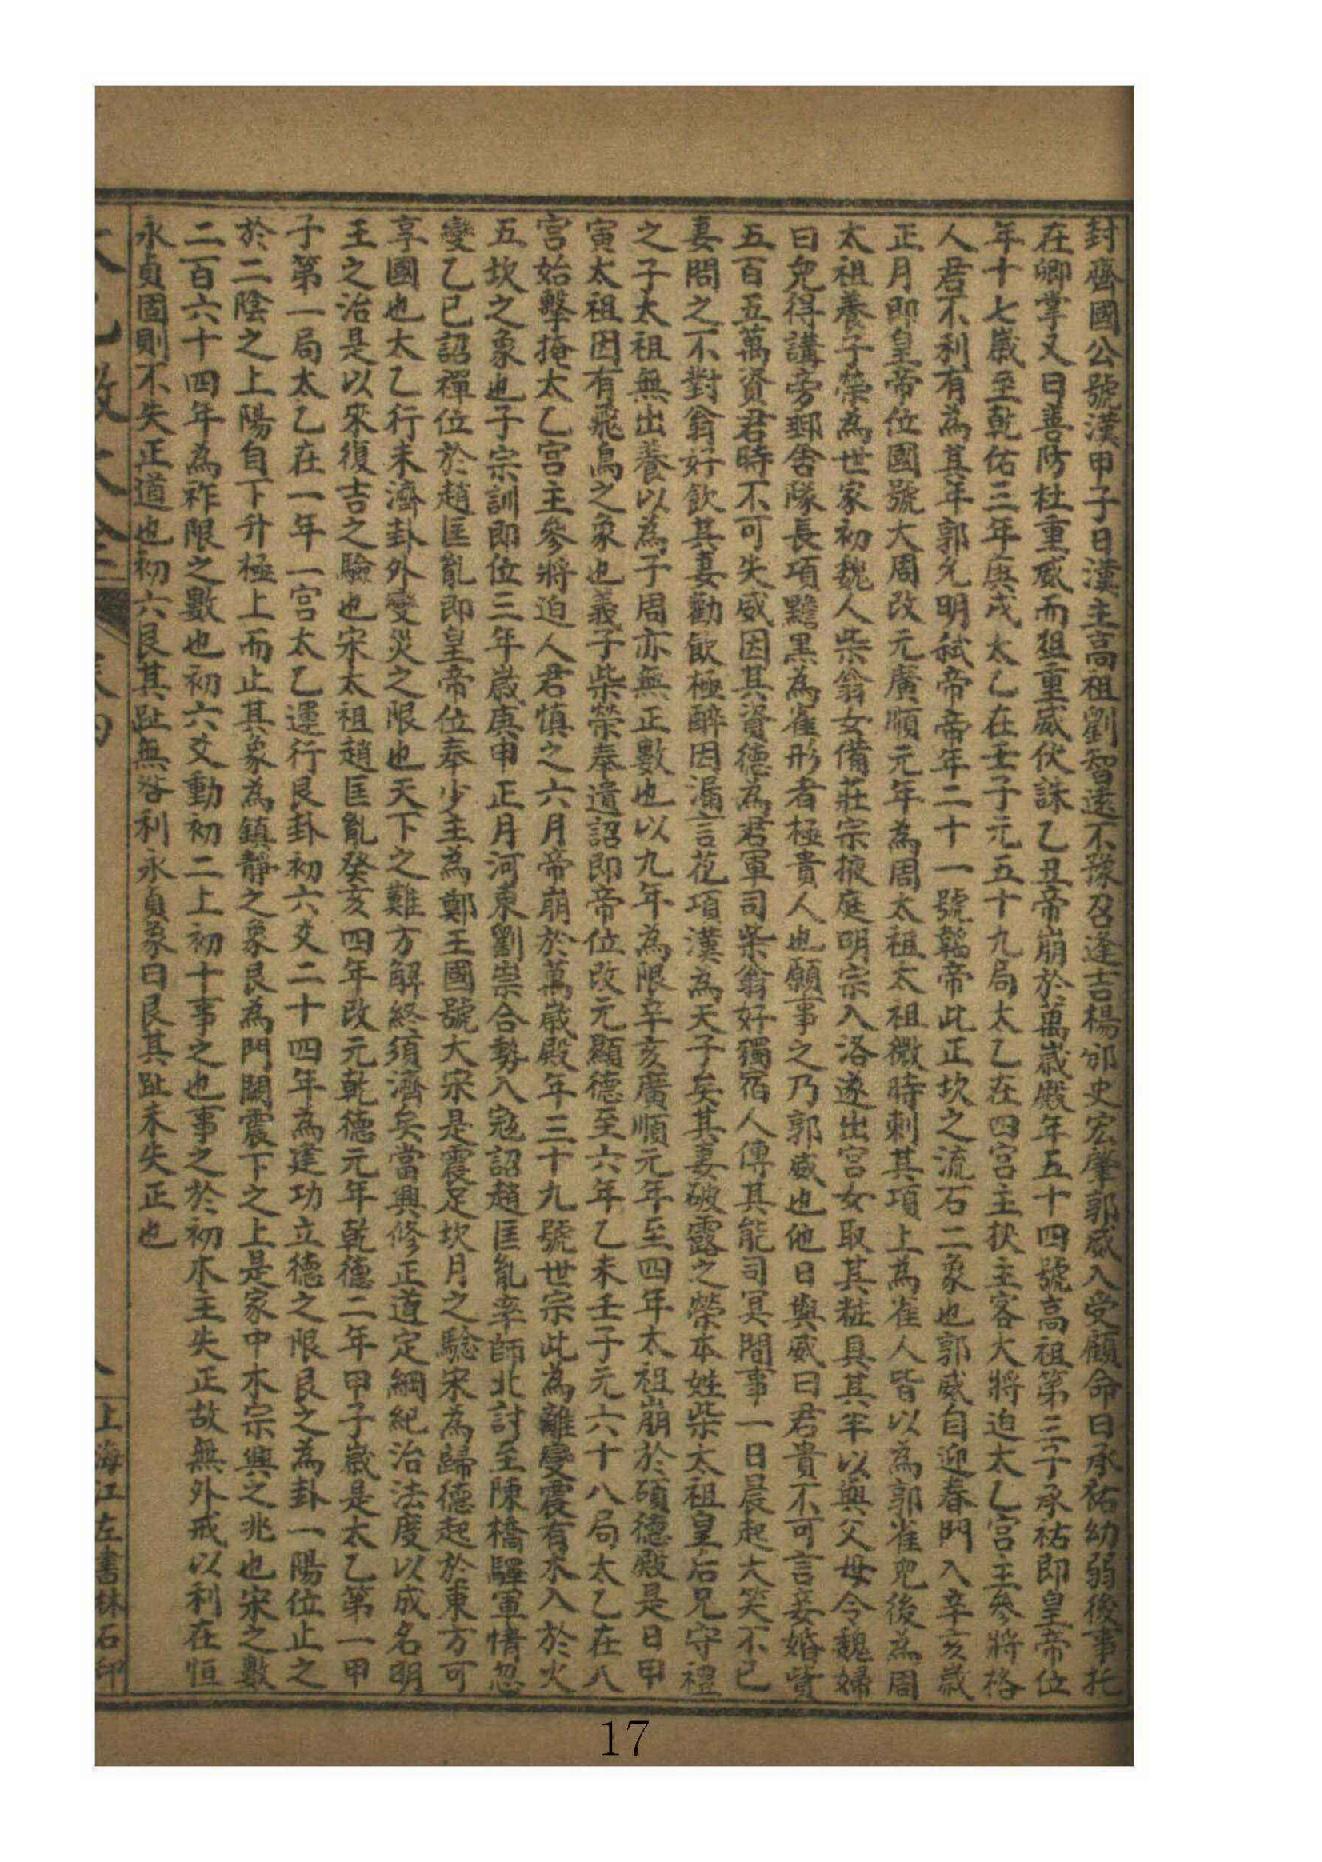 封齊國公號漢甲子日漢主高祖劉智遠不豫召逢吉楊邠史宏肇郭威入受顧命曰承祐幼弱後事托
在卿掌又曰善防杜重威而殂重威伏誅乙丑帝崩於萬歲殿年五十四號高祖第三子承祐即皇帝位
年十七歲至乾佑三年庚戌太乙在壬子元五十九局太乙在四宮主挾主客大將迫太乙宮主參將格
人君不利有為其年郭允明弒帝帝年二十一號帝此正坎之流石二象也郭威自迎春門入辛亥歲
正月即皇帝位國號大周改元廣順元年為周太祖太祖微時刺其項上為雀人皆以為郭雀兒後為周
太祖養子榮為世家初魏人柴翁女備莊宗掖庭明宗入洛遂出宮女取其粧具其半以與父母令魏婦
曰兒得講旁郵舍隊長項黶黑為雀形者極貴人也願事之乃郭威也他日與威曰君貴不可言妾婚賢
五百五萬資君時不可失威因其資德為君軍司柴翁好獨宿人傳其能司冥間事一日晨起大笑不已
妻問之不對翁好飲其妻勸飲極醉因漏言花項漢為天子矣其妻破露之榮本姓柴太祖皇后兄守禮
之子太祖無出養以為子周亦無正數也以九年為限辛亥廣順元年至四年太祖崩於碩德殿是日甲
寅太祖因有飛鳥之象也義子柴榮奉遺詔即帝位改元顯德至六年乙未壬子元六十八局太乙在八
宮始擊掩太乙宮主參將迫人君慎之六月帝崩於萬歲殿年三十九號世宗此為離變震有木入於火
五坎之象也子宗訓即位三年歲庚申正月河東劉崇合勢入寇詔趙匡亂率師北討至陳橋驛軍情忽
變乙巳詔禪位於趙匡亂即皇帝位奉少主為鄭王國號大宋是震足坎月之驗宋為歸德起於東方可
享國也太乙行未濟卦外變災之限也天下之難方解終須濟矣當興修正道定綱紀治法度以成名明
王之治是以來復吉之驗也宋太祖趙匡亂癸亥四年改元乾德元年乾德二年甲子歲是太乙第一甲
子第一局太乙在一年一宮太乙運行艮卦初六爻二十四年為建功立德之限艮之為卦一陽位止之
於二陰之上陽自下升極上而止其象為鎮靜之象艮為門闕震下之上是家中木宗興之兆也宋之數
二百六十四年為祚限之數也初六爻動初二上初十事之也事之於初木主失正故無外戒以利在恒
永貞固則不失正道也初六艮其趾無咎利永貞象曰艮其趾未失正也
上海江左書林石印
17